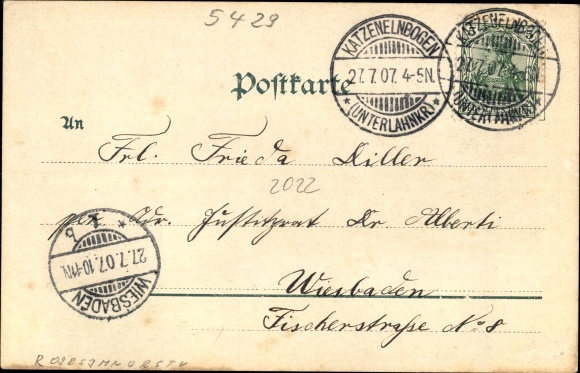 5429
KATZENELNBOGEN
27.7.07. 4-5N.
* (UNTERLAHNKR) *
KATZENELNBOGEN
27.7.07.
* (UNTERLAHNKR) *
Postkarte
An
Frl. Frieda Diller
2022
per Adr. Justitzrat Dr. Alberti
Wiesbaden
Fischerstraße No 8
WIESBADEN
27.7.07. 10-11N.
* 1 b